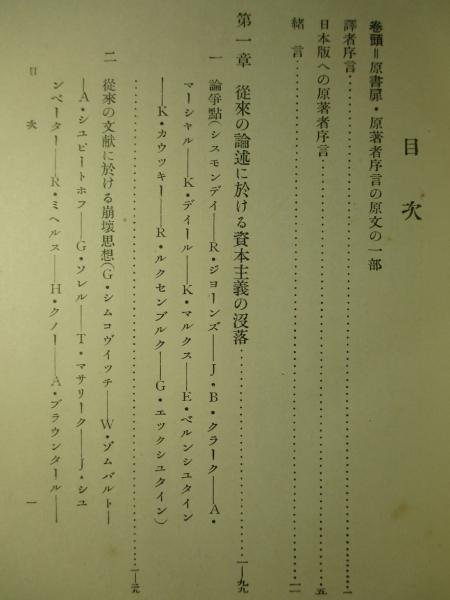 目次
卷頭=原書扉・原著者序言の原文の一部
譯者序言……一
日本版への原著者序言……五
緖言……一一
第一章 從來の論述に於ける資本主義の沒落……一—九九
一 論爭點(シスモンディ——R・ジョーンズ——J・B・クラーク——A・
マーシャル——K・ディール——K・マルクス——E・ベルンシュタイン
——K・カウツキー——R・ルクセンブルク——G・エックシュタイン)
……一—元
二 從來の文獻に於ける崩壞思想(G・シムコヴイッチ——W・ゾムバルト—
—A・シュピートホフ——G・ソレル——T・マサリーク——J・シュ
ンペーター——R・ミヘルス——H・クノー——A・ブラウンタール——
目次 一